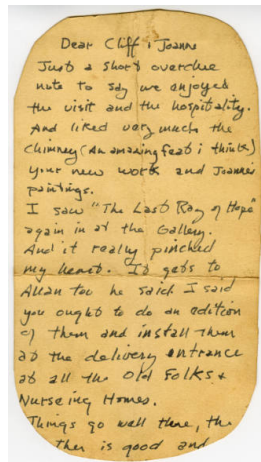 Dear Cliff & Joanne
Just a short overdue
note to say we enjoyed
the visit and the hospitality.
And liked very much the
chimney (An amazing feat i think)
your new work and Joanne's
paintings.
I saw "The Last Ray of Hope"
again in at the Gallery.
And it really pinched
my heart. It gets to
Allan too he said. I said
you ought to do an edition
of them and install them
at the delivery entrance
at all the Old Folks &
Nurseing Homes.
Things go well there, the
ther is good and